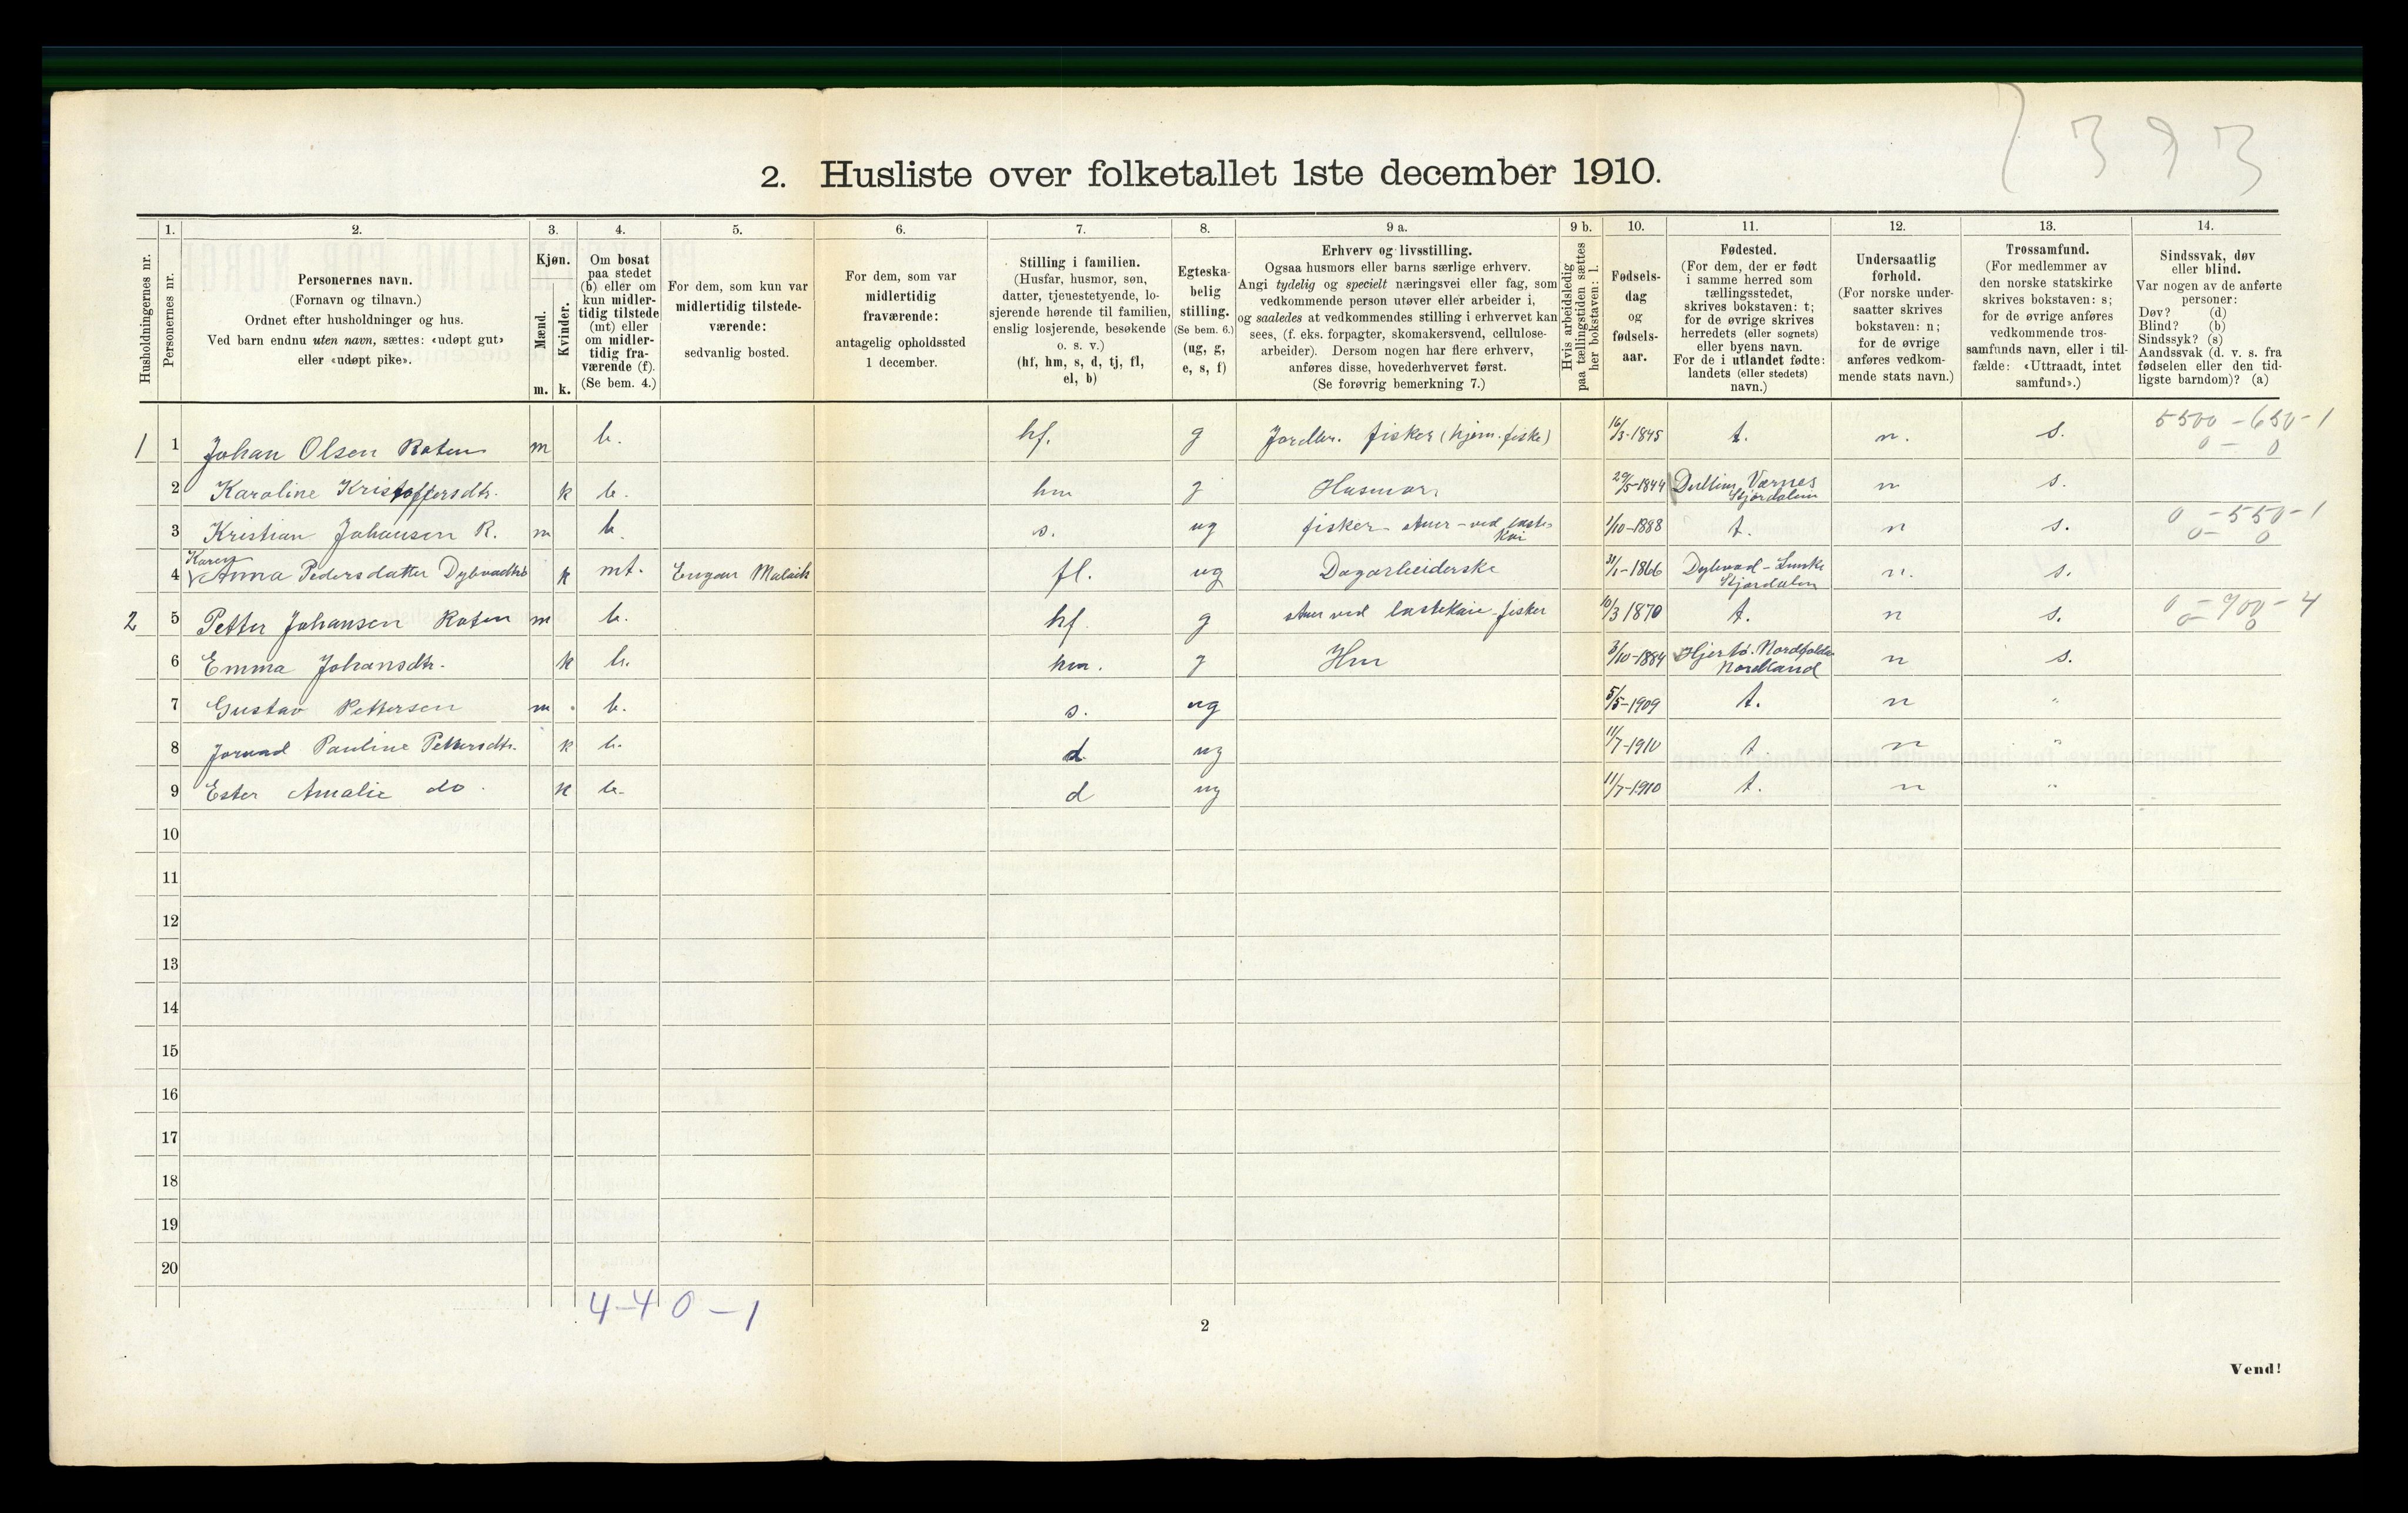 393
2. Husliste over folketallet 1ste december 1910.
Husholdningernes nr.
1.
Personernes nr.
2.
Personernes navn.
(Fornavn og tilnavn.)
Ordnet efter husholdninger og hus.
Ved barn endnu uten navn, sættes: «udøpt gut»
eller «udøpt pike».
3.
Kjøn.
Mænd.
Kvinder.
m. k.
4.
Om bosat
paa stedet
(b) eller om
kun midler-
tidig tilstede
(mt) eller
om midler-
tidig fra-
værende (f).
(Se bem. 4.)
5.
For dem, som kun var
midlertidig tilstede-
værende:
sedvanlig bosted.
6.
For dem, som var
midlertidig
fraværende:
antagelig opholdssted
1 december.
7.
Stilling i familien.
(Husfar, husmor, søn,
datter, tjenestetyende, lo-
sjerende hørende til familien,
enslig losjerende, besøkende
o. s. v.)
(hf, hm, s, d, tj, fl,
el, b)
8.
Egteska-
belig
stilling.
(Se bem. 6.)
(ug, g,
e, s, f)
9 a.
Erhverv og livsstilling.
Ogsaa husmors eller barns særlige erhverv.
Angi tydelig og specielt næringsvei eller fag, som
vedkommende person utøver eller arbeider i,
og saaledes at vedkommendes stilling i erhvervet kan
sees, (f. eks. forpagter, skomakersvend, cellulose-
arbeider). Dersom nogen har flere erhverv,
anføres disse, hovederhvervet først.
(Se forøvrig bemerkning 7.)
9 b.
Hvis arbeidsledig
paa tællingstiden sættes
her bokstaven: l.
10.
Fødsels-
dag
og
fødsels-
aar.
11.
Fødested.
(For dem, der er født
i samme herred som
tællingsstedet,
skrives bokstaven: t;
for de øvrige skrives
herredets (eller sognets)
eller byens navn.
For de i utlandet fødte:
landets (eller stedets)
navn.)
12.
Undersaatlig
forhold.
(For norske under-
saatter skrives
bokstaven: n;
for de øvrige
anføres vedkom-
mende stats navn.)
13.
Trossamfund.
(For medlemmer av
den norske statskirke
skrives bokstaven: s;
for de øvrige anføres
vedkommende tros-
samfunds navn, eller i til-
fælde: «Uttraadt, intet
samfund».)
14.
Sindssvak, døv
eller blind.
Var nogen av de anførte
personer:
Døv? (d)
Blind? (b)
Sindssyk? (s)
Aandssvak (d. v. s. fra
fødselen eller den tid-
ligste barndom)? (a)
1 1 Johan Olsen Roten m b. hf. g Jordbr. fisker (hjem. fiske) 16/3-1845 t. n. s. 5500-650-1
0-0
2 Karoline Kristoffersdtr. k b. hm g Husmor 29/5-1844 Værnes n s.
Stjørdalen
3 Kristian Johansen R. m b. s. ug fisker - stuer - ved laste- 1/10-1888 t. n s. 0-550-1
Kai 0-0
Karen
4 Anna Pedersdatter k mt. Engan Malvik fl. ug Dagarbeiderske 31/1-1866 n. s.
Stjørdalen
2 5 Petter Johansen Roten m b. hf. g stuer ved lastekaie - fisker 10/3 1870 t. n s. 0-900-4
0-0
6 Emma Johansdtr. k b. hm. g Hm 3/10-1884 n s.
Nordland
7 Gustav Pettersen m b. s. ug 5/5-1909 t. n "
8 Pauline Pettersdtr. k b. d ug 11/7-1910 t. n "
9 Ester Amalie do. k b. d ug 11/7-1910 t. n "
10
11
12
13
14
15
16
17
18
19
20
4-4 0-1
2
Vend!